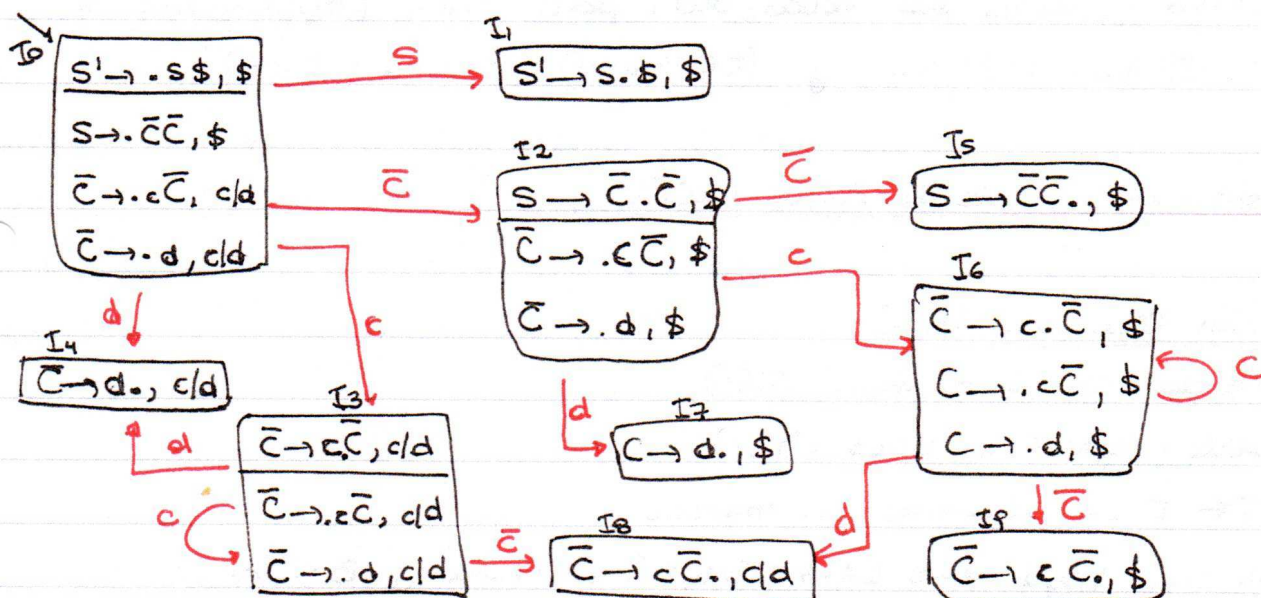 I0
S' → .S $, $
S → .C̅C̅, $
C̅ → .cC̅, c/d
C̅ → .d, c/d
S
I1
S' → S.$, $
C̅
I2
S → C̅.C̅, $
C̅ → .cC̅, $
C̅ → .d, $
C̅
I5
S → C̅C̅., $
c
I6
C̅ → c.C̅, $
C → .cC̅, $
C → .d, $
C
d
I4
C̅ → d., c/d
c
d
I3
C̅ → c.C̅, c/d
C̅ → .cC̅, c/d
C̅ → .d, c/d
c
d
I7
C → d., $
C̅
I8
C̅ → cC̅., c/d
d
C̅
I9
C̅ → cC̅., $